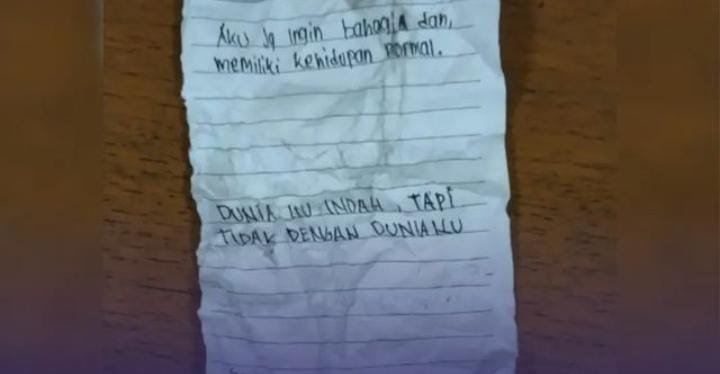 Aku jg ingin bahagia dan,
memiliki kehidupan normal.
DUNIA ITU INDAH, TAPI
TIDAK DENGAN DUNIAKU